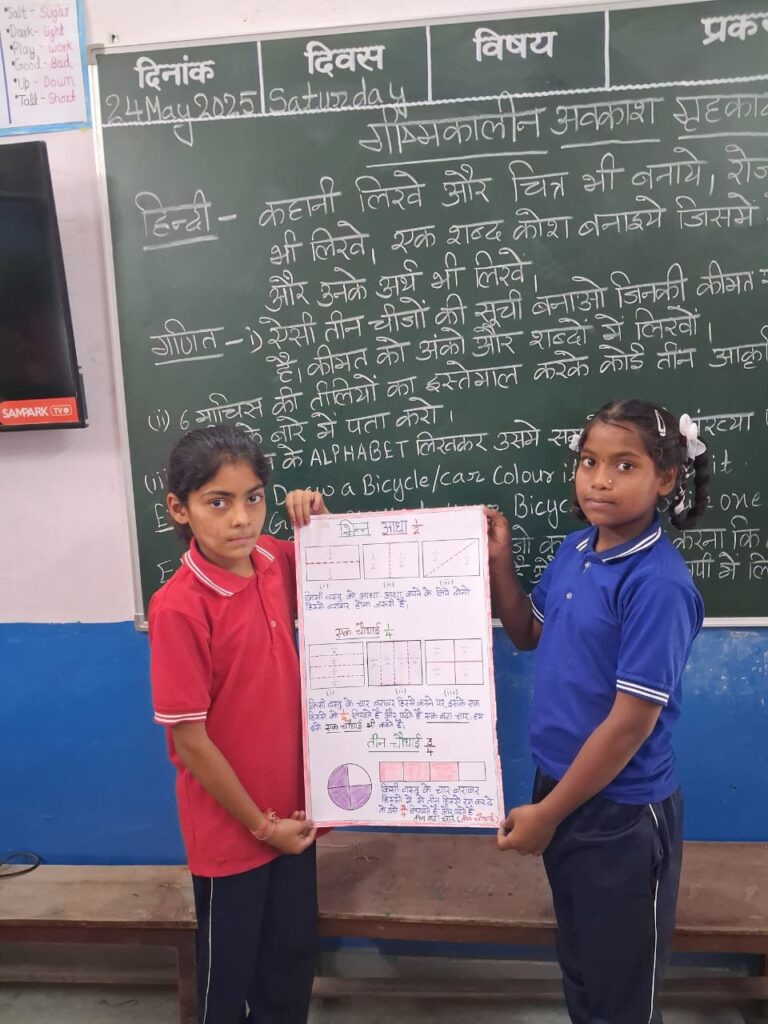 Salt - Sugar
Dark - light
Play - work
Good - Bad
Up - Down
Tall - Short
दिनांक
दिवस
विषय
24 May 2025
Saturday
ग्रीष्मकालीन अवकाश
हिन्दी - कहानी लिखे और चित्र भी बनाये,
भी लिखे, एक शब्द कोश बनाइये जिसमें
और उनके अर्थ भी लिखें।
गणित - i) ऐसी तीन चीजों की सूची बनाओ जिनकी कीमत
है। कीमत को अंको और शब्दों में लिखों।
(ii) 6 माचिस की तीलियों का इस्तेमाल करके कोई तीन
के बारे में पता करो।
के ALPHABET लिखकर उसमे
a Bicycle/car Colour it
Bicyc one
करना कि
SAMPARK TV
भिन्न आधा 1/2
1/2
1/2
1/2
1/2
1/2
1/2
(i)
(ii)
(iii)
किसी वस्तु को आधा-आधा करने के लिये दोनो
हिस्से बराबर होना जरूरी है।
एक चौथाई 1/4
(i)
(ii)
(iii)
किसी वस्तु के चार बराबर हिस्से करने पर इसके एक
हिस्से को 1/4 लिखते हैं और पढ़ते हैं एक बटा चार, हम
इसे एक चौथाई भी कहते हैं।
तीन चौथाई 3/4
किसी वस्तु के चार बराबर
हिस्सों में से तीन हिस्से रंग कर दे
तो उसे 3/4 लिखते हैं और पढ़ते हैं
तीन बटा चार (तीन चौथाई)